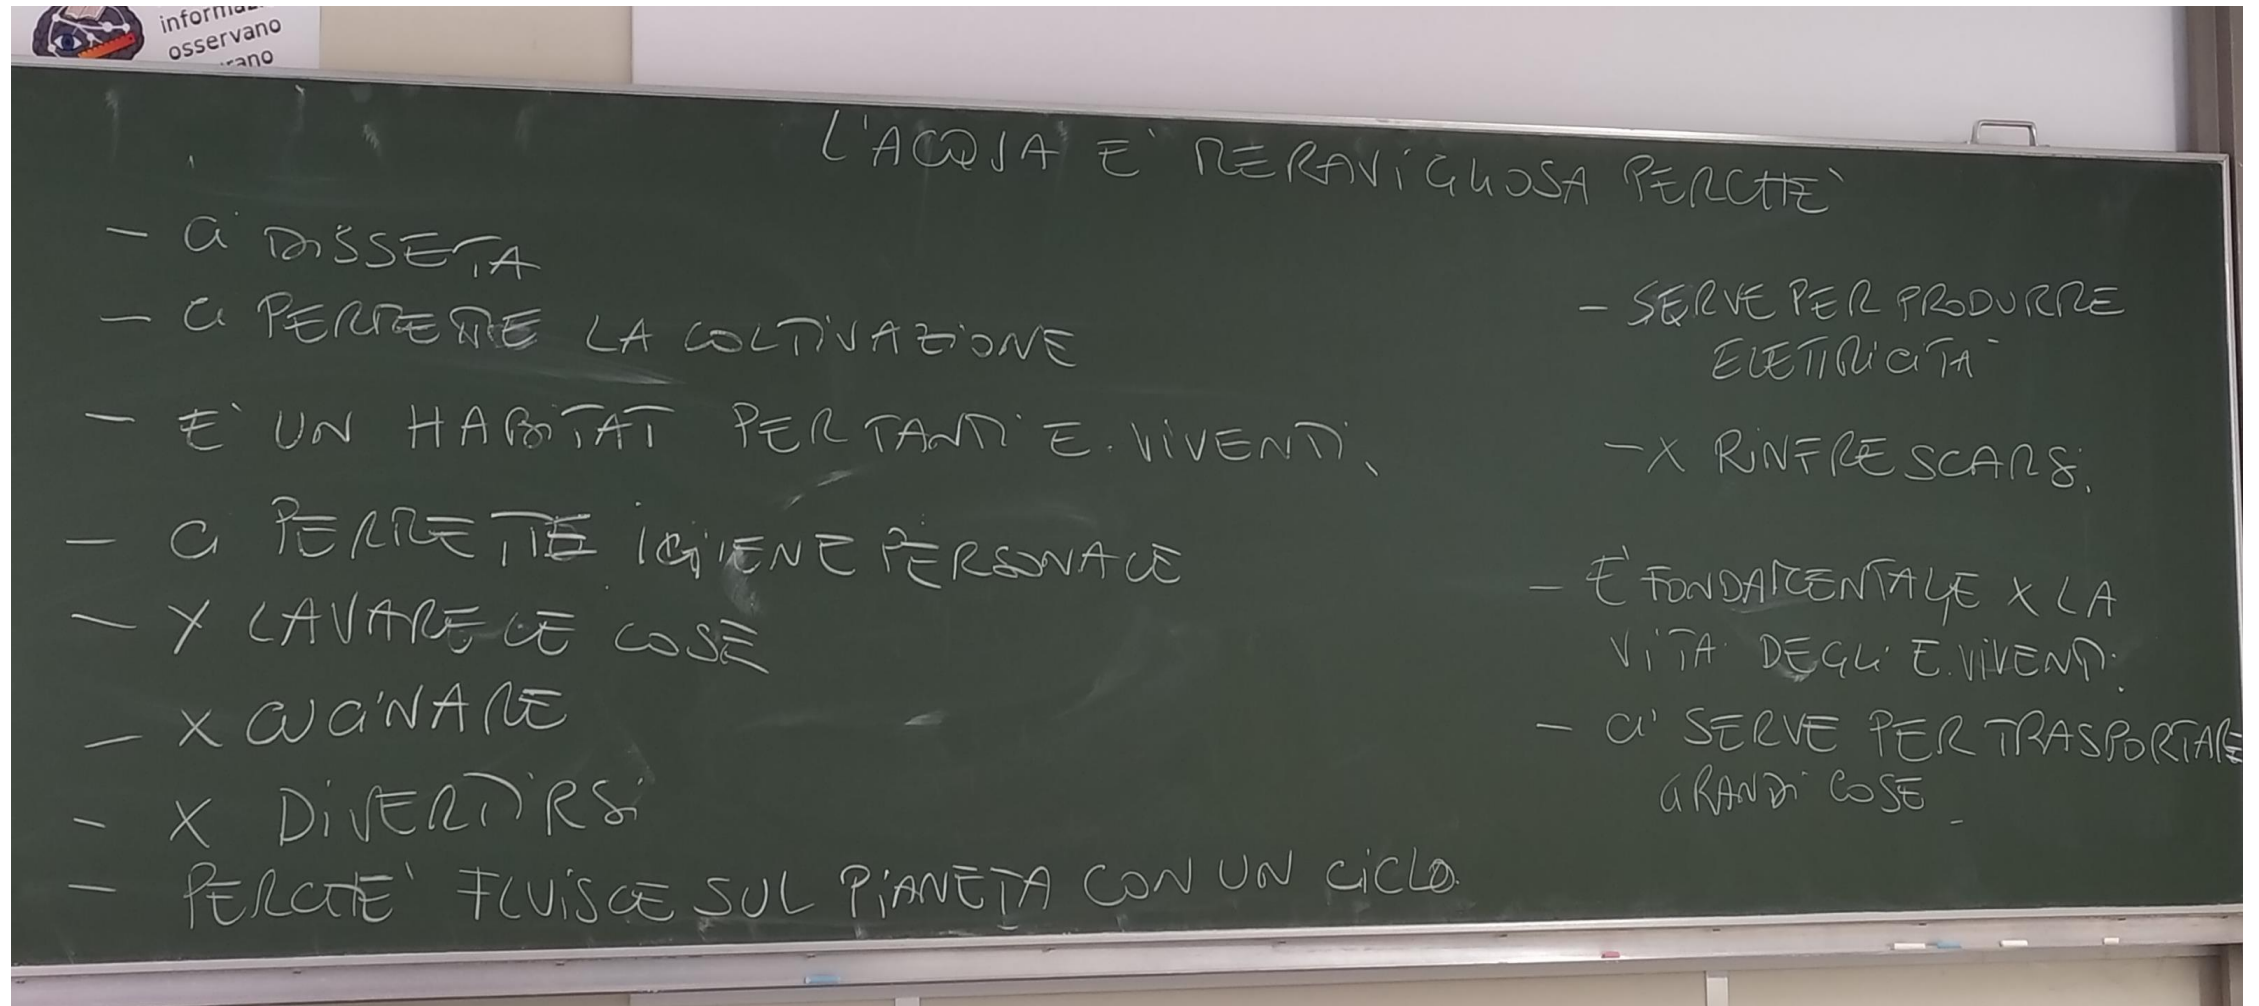 osservano
L'ACQUA E' MERAVIGLIOSA PERCHE'
- CI DISSETA
- CI PERMETTE LA COLTIVAZIONE
- E' UN HABITAT PER TANTI E. VIVENTI.
- CI PERMETTE IGIENE PERSONALE
- X LAVARE LE COSE
- X CUCINARE
- X DIVERTIRSI
- PERCHE' FLUISCE SUL PIANETA CON UN CICLO.
- SERVE PER PRODURRE
ELETTRICITA'
- X RINFRESCARSI.
- E' FONDAMENTALE X LA
VITA DEGLI E. VIVENTI.
- CI SERVE PER TRASPORTARE
GRANDI COSE